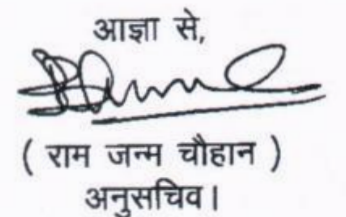 आज्ञा से,
( राम जन्म चौहान )
अनुसचिव।